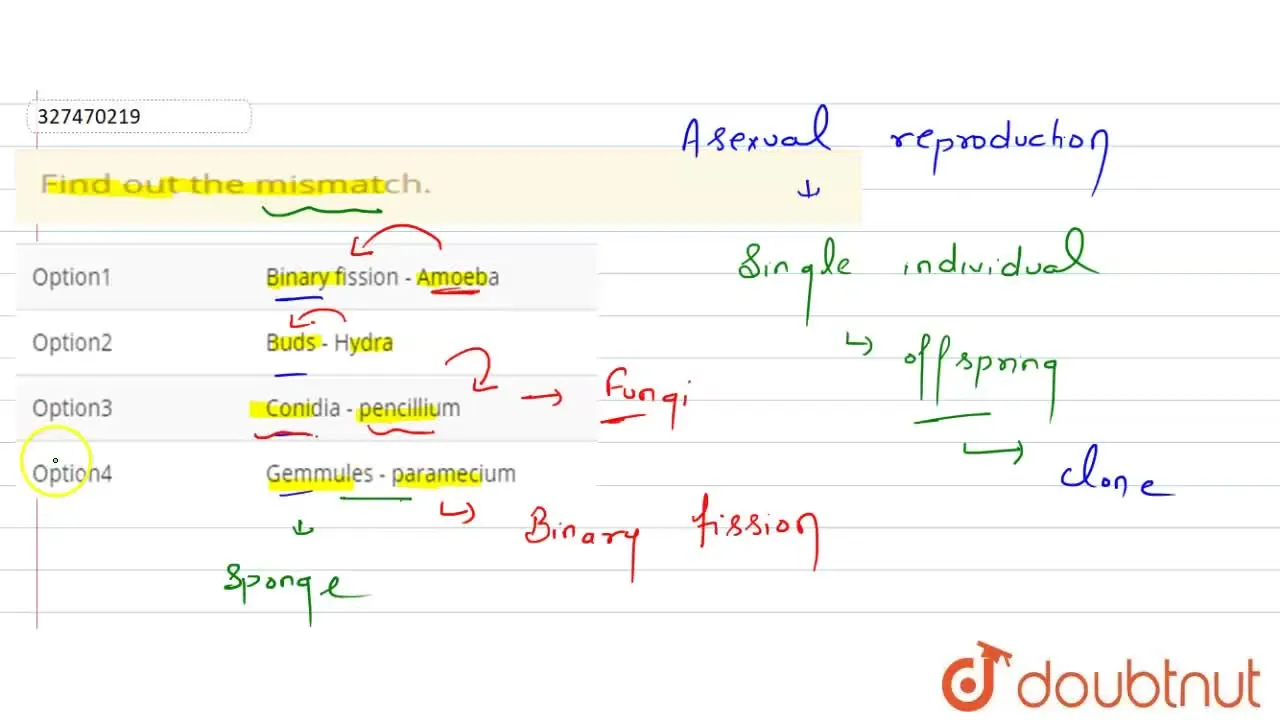 327470219
Asexual reproduction
↓
Find out the mismatch.
Single individual
Option1 Binary fission - Amoeba
Option2 Buds - Hydra
↳ offspring
Option3 Conidia - pencillium → Fungi
→ clone
Option4 Gemmules - paramecium
↓ ↳ Binary fission
Sponge
doubtnut